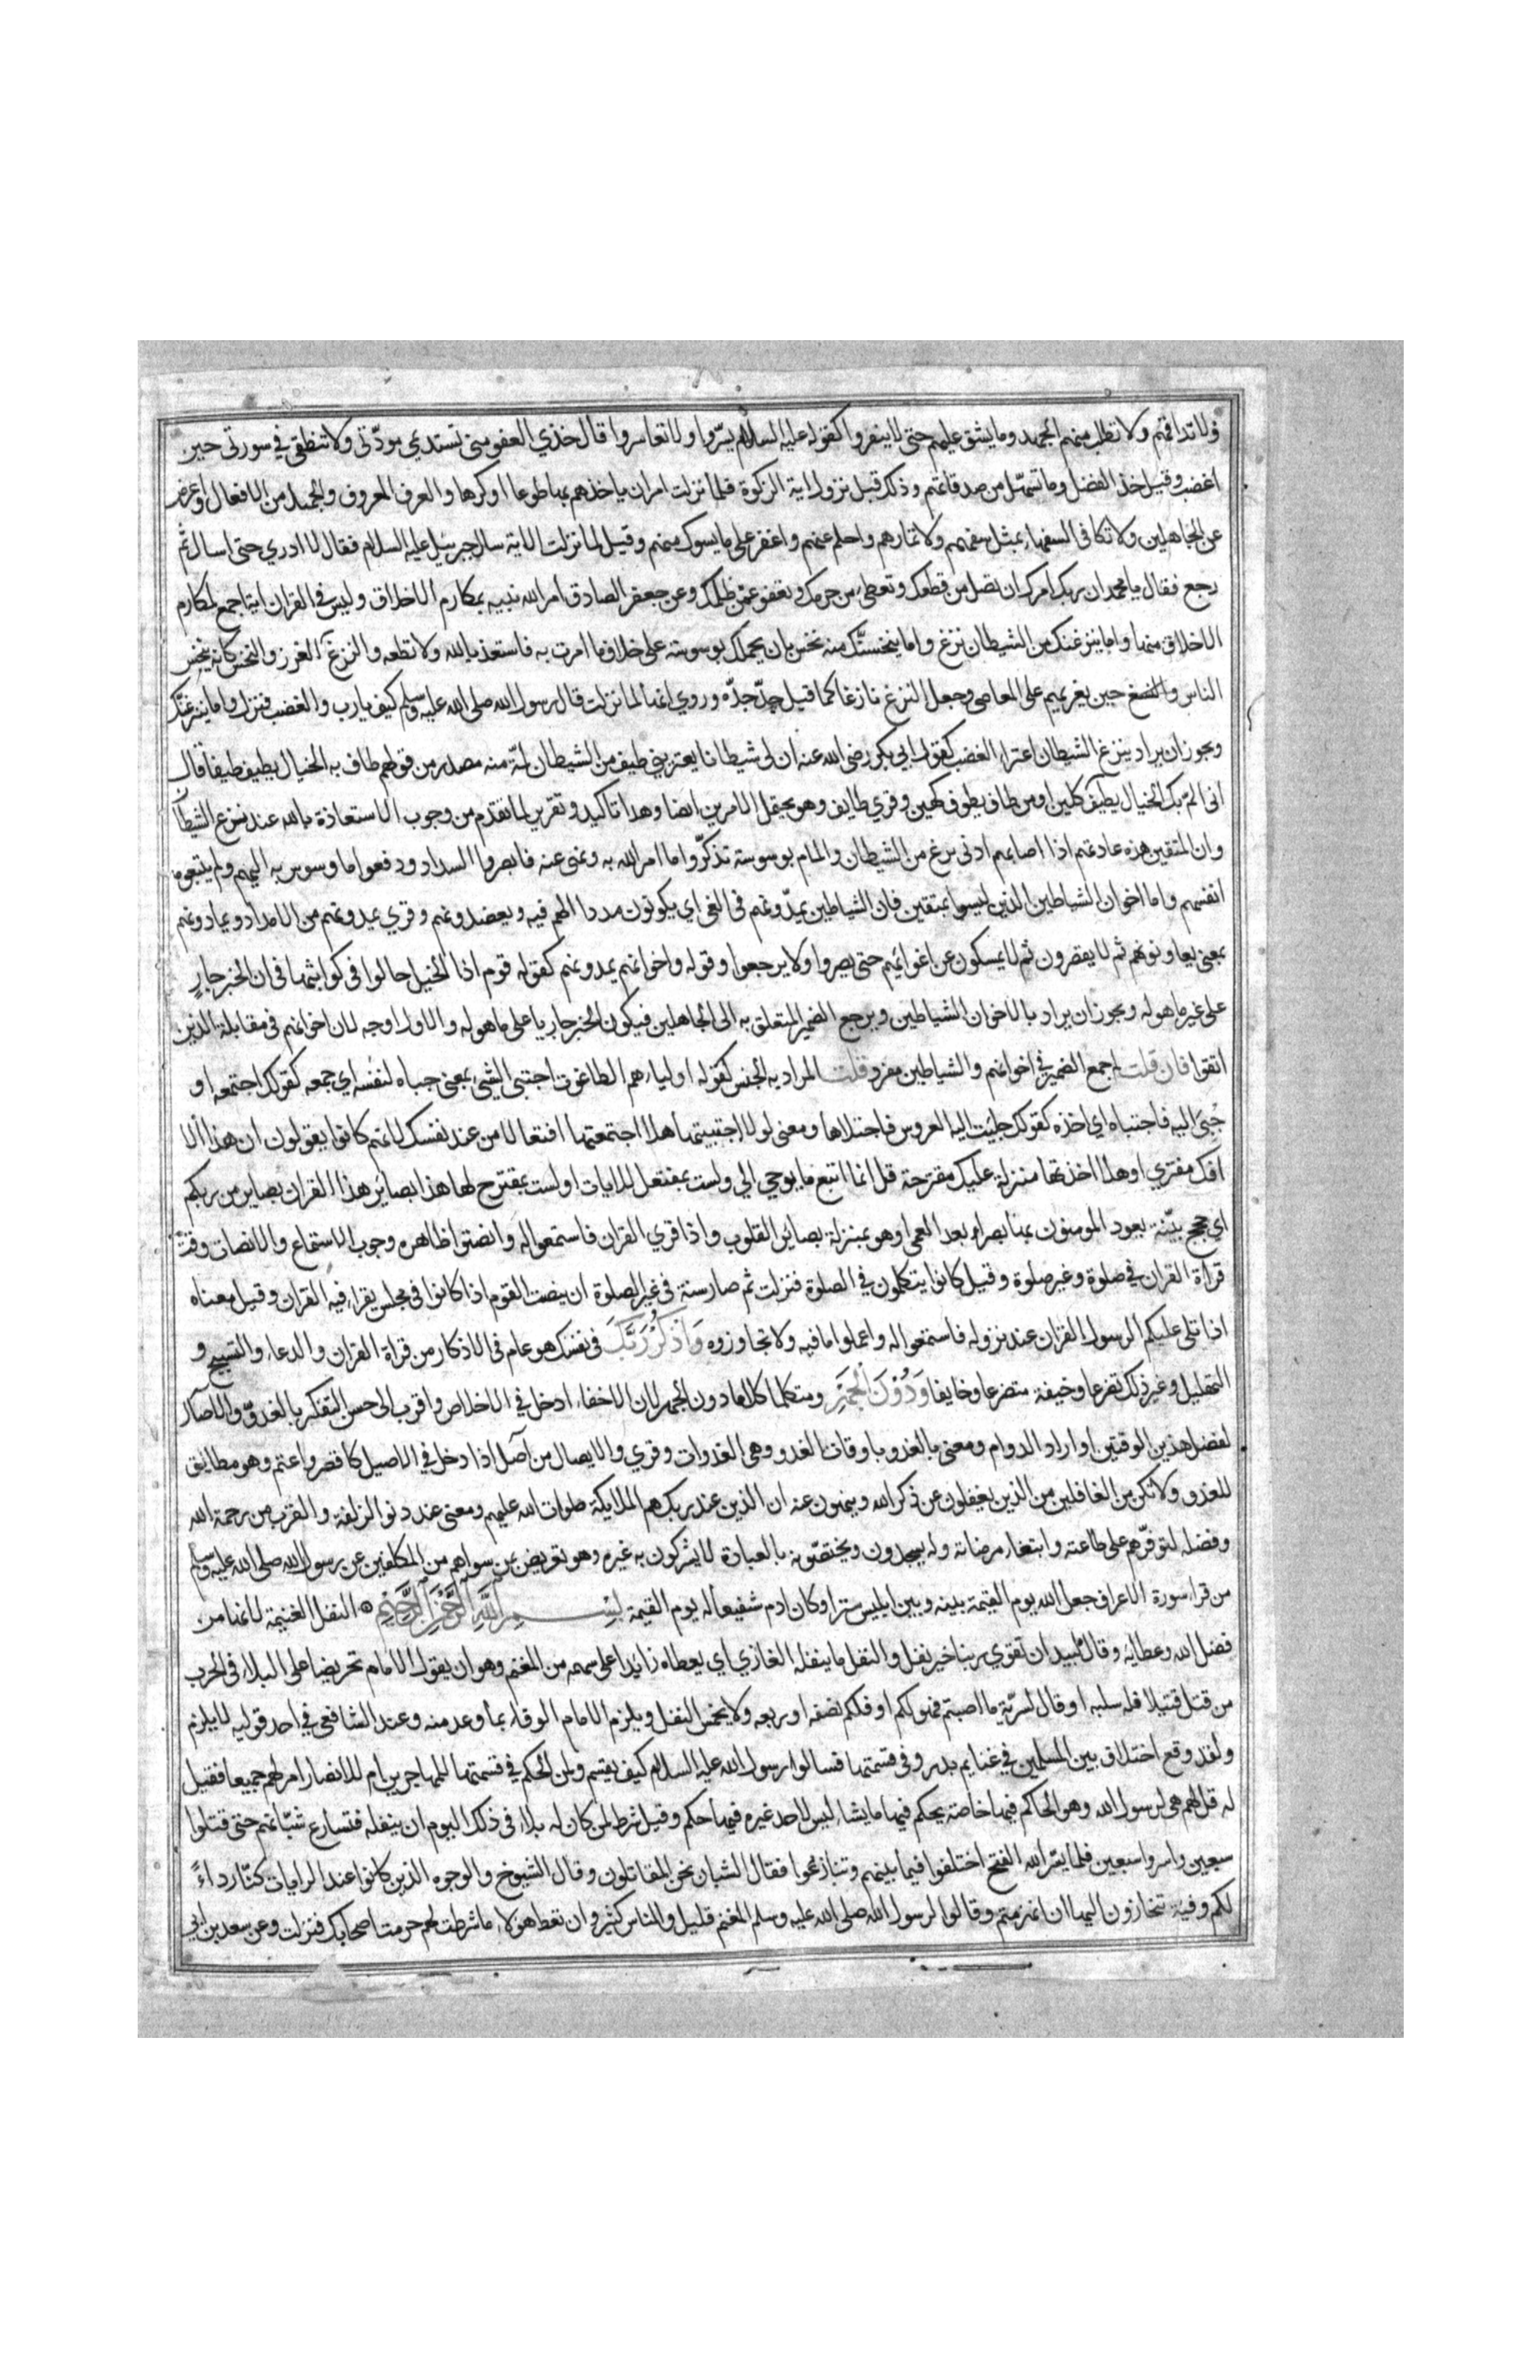 ولا تداقهم ولا تطلب منهم الجهد وما يشق عليهم حتى لا ينفروا كقوله عليه السلام يسّروا ولا تعاسروا قال خذي العفو مني تستديمي مودّتي ولا تنطقي في سورتي حين
اغضب وقيل خذ الفضل وما تسهّل من صدقاتهم وذلك قبل نزول اية الزكوة فلما نزلت امر ان ياخذهم بها طوعا او كرها والعرف المعروف والجميل من الافعال واعرض
عن الجاهلين ولا تكافى السفهاء بمثل سفههم ولا تمارهم واحلم عنهم واغفر على ما يسوك منهم وقيل لما نزلت الاية سال جبرئيل عليه السلام فقال لا ادري حتى اسال ثم
رجع فقال يا محمد ان ربك امرك ان تصل من قطعك وتعطي من حرمك وتعفو عمّن ظلمك وعن جعفر الصادق امر الله نبيه بمكارم الاخلاق وليس في القران اية اجمع لمكارم
الاخلاق منها واما ينزغنك من الشيطان نزغ واما ينخسنّك منه نخس بان يحملك بوسوسته على خلاف ما امرت به فاستعذ بالله ولا تطعه والنزغ الغرز والنخس كانه ينخس
الناس حين يغريهم على المعاصي وجعل النزغ نازغا كما قيل جدّ جدّه وروي انها لما نزلت قال رسول الله صلى الله عليه وسلم كيف يا رب والغضب فنزل واما ينزغنّك
ويجوز ان يراد بنزغ الشيطان اعتراء الغضب كقول ابي بكر رضى الله عنه ان لى شيطانا يعتريني طيف من الشيطان لمّة منه مصدر من قولهم طاف به الخيال يطيف طيفا قال
انى المّ بك الخيال يطيف كلين او من طاف يطوف كهين وقري طايف وهو يحتمل الامرين ايضا وهذا تاكيد وتقرير لما تقدم من وجوب الاستعاذة بالله عند نزغ الشيطان
وان المتقين هذه عادتهم اذا اصابهم ادنى نزغ من الشيطان والمام بوسوسته تذكّروا ما امر الله به ونهى عنه فابصروا السداد ودفعوا ما وسوس به اليهم ولم يتبعوه
انفسهم واما اخوان الشياطين الذين ليسوا بمتقين فان الشياطين يمدّونهم فى الغى اي يكونون مددا لهم فيه ويعضدونهم وقري يمدونهم من الامداد ويمادونهم
بمعنى يعاونونهم ثم لا يقصرون ثم لا يمسكون عن اغوائهم حتى يصروا ولا يرجعوا وقوله واخوانهم يمدونهم كقوله قوم اذا الخيل جالوا فى كواثبها فى ان الخبر جارٍ
على غير ما هو له ويجوز ان يراد بالاخوان الشياطين ويرجع الضمير المتعلق به الى الجاهلين فيكون الخبر جاريا على ما هو له والاول اوجه لان اخوانهم فى مقابلة الذين
اتقوا فان قلت لم جمع الضمير في اخوانهم والشياطين مفرد قلت المراد به الجنس كقوله اولياءهم الطاغوت اجتبى الشيء بمعنى جباه لنفسه اي جمعه كقولك اجتمعه او
جُبىَ اليه فاجتباه اي اخذه كقولك جليت اليه العروس فاجتلاها ومعنى لولا اجتبيتها هلا اجتمعتها افتعالا من عند نفسك لانهم كانوا يقولون ان هذا الا
افك مفترى او هلا اخذتها منزلة عليك مقترحة قل انما اتبع ما يوحي الي ولست بمفتعل للايات او لست بمقترح لها هذا بصاير هذا القران بصاير من ربكم
اي حجج بيّنة يعود المومنون بها بصراء بعد العمى او هو بمنزلة بصاير القلوب واذا قري القران فاستمعوا له وانصتوا ظاهره وجوب الاستماع والانصات وقت
قراة القران في صلوة وغير صلوة وقيل كانوا يتكلمون في الصلوة فنزلت ثم صار سنة فى غير الصلوة ان ينصت القوم اذا كانوا فى مجلس يقراء فيه القران وقيل معناه
اذا تلى عليكم الرسول القران عند نزوله فاستمعوا له واعملوا بما فيه ولا تجاوزوه وَاذْكُرْ رَبَّكَ فى نفسك هو عام فى الاذكار من قراة القران والدعاء والتسبيح و
التهليل وغير ذلك تضرعا وخيفة متضرعا وخايفا وَدُوْنَ الجَهْرِ ومتكلما كلاما دون الجهر لان الاخفاء ادخل في الاخلاص واقرب الى حسن التفكر بالغدوّ والاصآل
لفضل هذين الوقتين او اراد الدوام ومعنى بالغدو باوقات الغدو وهى الغدوات وقري والايصال من آصل اذا دخل في الاصيل كاقصر واعتم وهو مطابق
للغدو ولا تكن من الغافلين من الذين يغفلون عن ذكر الله ويلهون عنه ان الذين عند ربك هم الملايكة صلوات الله عليهم ومعنى عند دنو الزلفة والقرب من رحمة الله
وفضله لتوفّرهم على طاعته وابتغاء مرضاته وله يسجدون ويختصّونه بالعبادة لا يشركون به غيره وهو تعريض بمن سواهم من المكلفين عن رسول الله صلى الله عليه وسلم
من قرا سورة الاعراف جعل الله يوم القيمة بينه وبين ابليس سترا وكان ادم شفيعا له يوم القيمة بِسْمِ اللّٰهِ الرَّحْمٰنِ الرَّحِيْمِ النفل الغنيمة لانها من
فضل الله وعطايه وقال لبيد ان تقوى ربنا خير نفل والنفل ما ينفله الغازي اي يعطاه زايدا على سهمه من المغنم وهو ان يقول الامام تحريضا على البلاء فى الحرب
من قتل قتيلا فله سلبه او قال لسريّة ما اصبتم فهو لكم او فلكم نصفه او ربعه ولا يخمس النفل ويلزم الامام الوفاء بما وعد منه وعند الشافعي في احد قوليه لا يلزم
ولقد وقع اختلاف بين المسلمين في غنايم بدر وفى قسمتها فسالوا رسول الله عليه السلام كيف يقسم ولمن الحكم في قسمتها للمهاجرين ام للانصار ام لهم جميعا فقيل
له قل لهم هي لرسول الله وهو الحاكم فيها خاصة يحكم فيها ما يشاء ليس لاحد غيره فيها حكم وقيل شرط لمن كان له بلاء فى ذلك اليوم ان ينفله فتسارع شبّانهم حتى قتلوا
سبعين واسروا سبعين فلما يسّر الله الفتح اختلفوا فيما بينهم وتنازعوا فقال الشبان نحن المقاتلون وقال الشيوخ والوجوه الذين كانوا عند الرايات كنّا رداءً
لكم وفية تنحازون اليها ان انهزمتم وقالوا لرسول الله صلى الله عليه وسلم المغنم قليل والناس كثير وان تعط هولاء ما شرطت لهم حرمت اصحابك فنزلت وعن سعد بن ابي